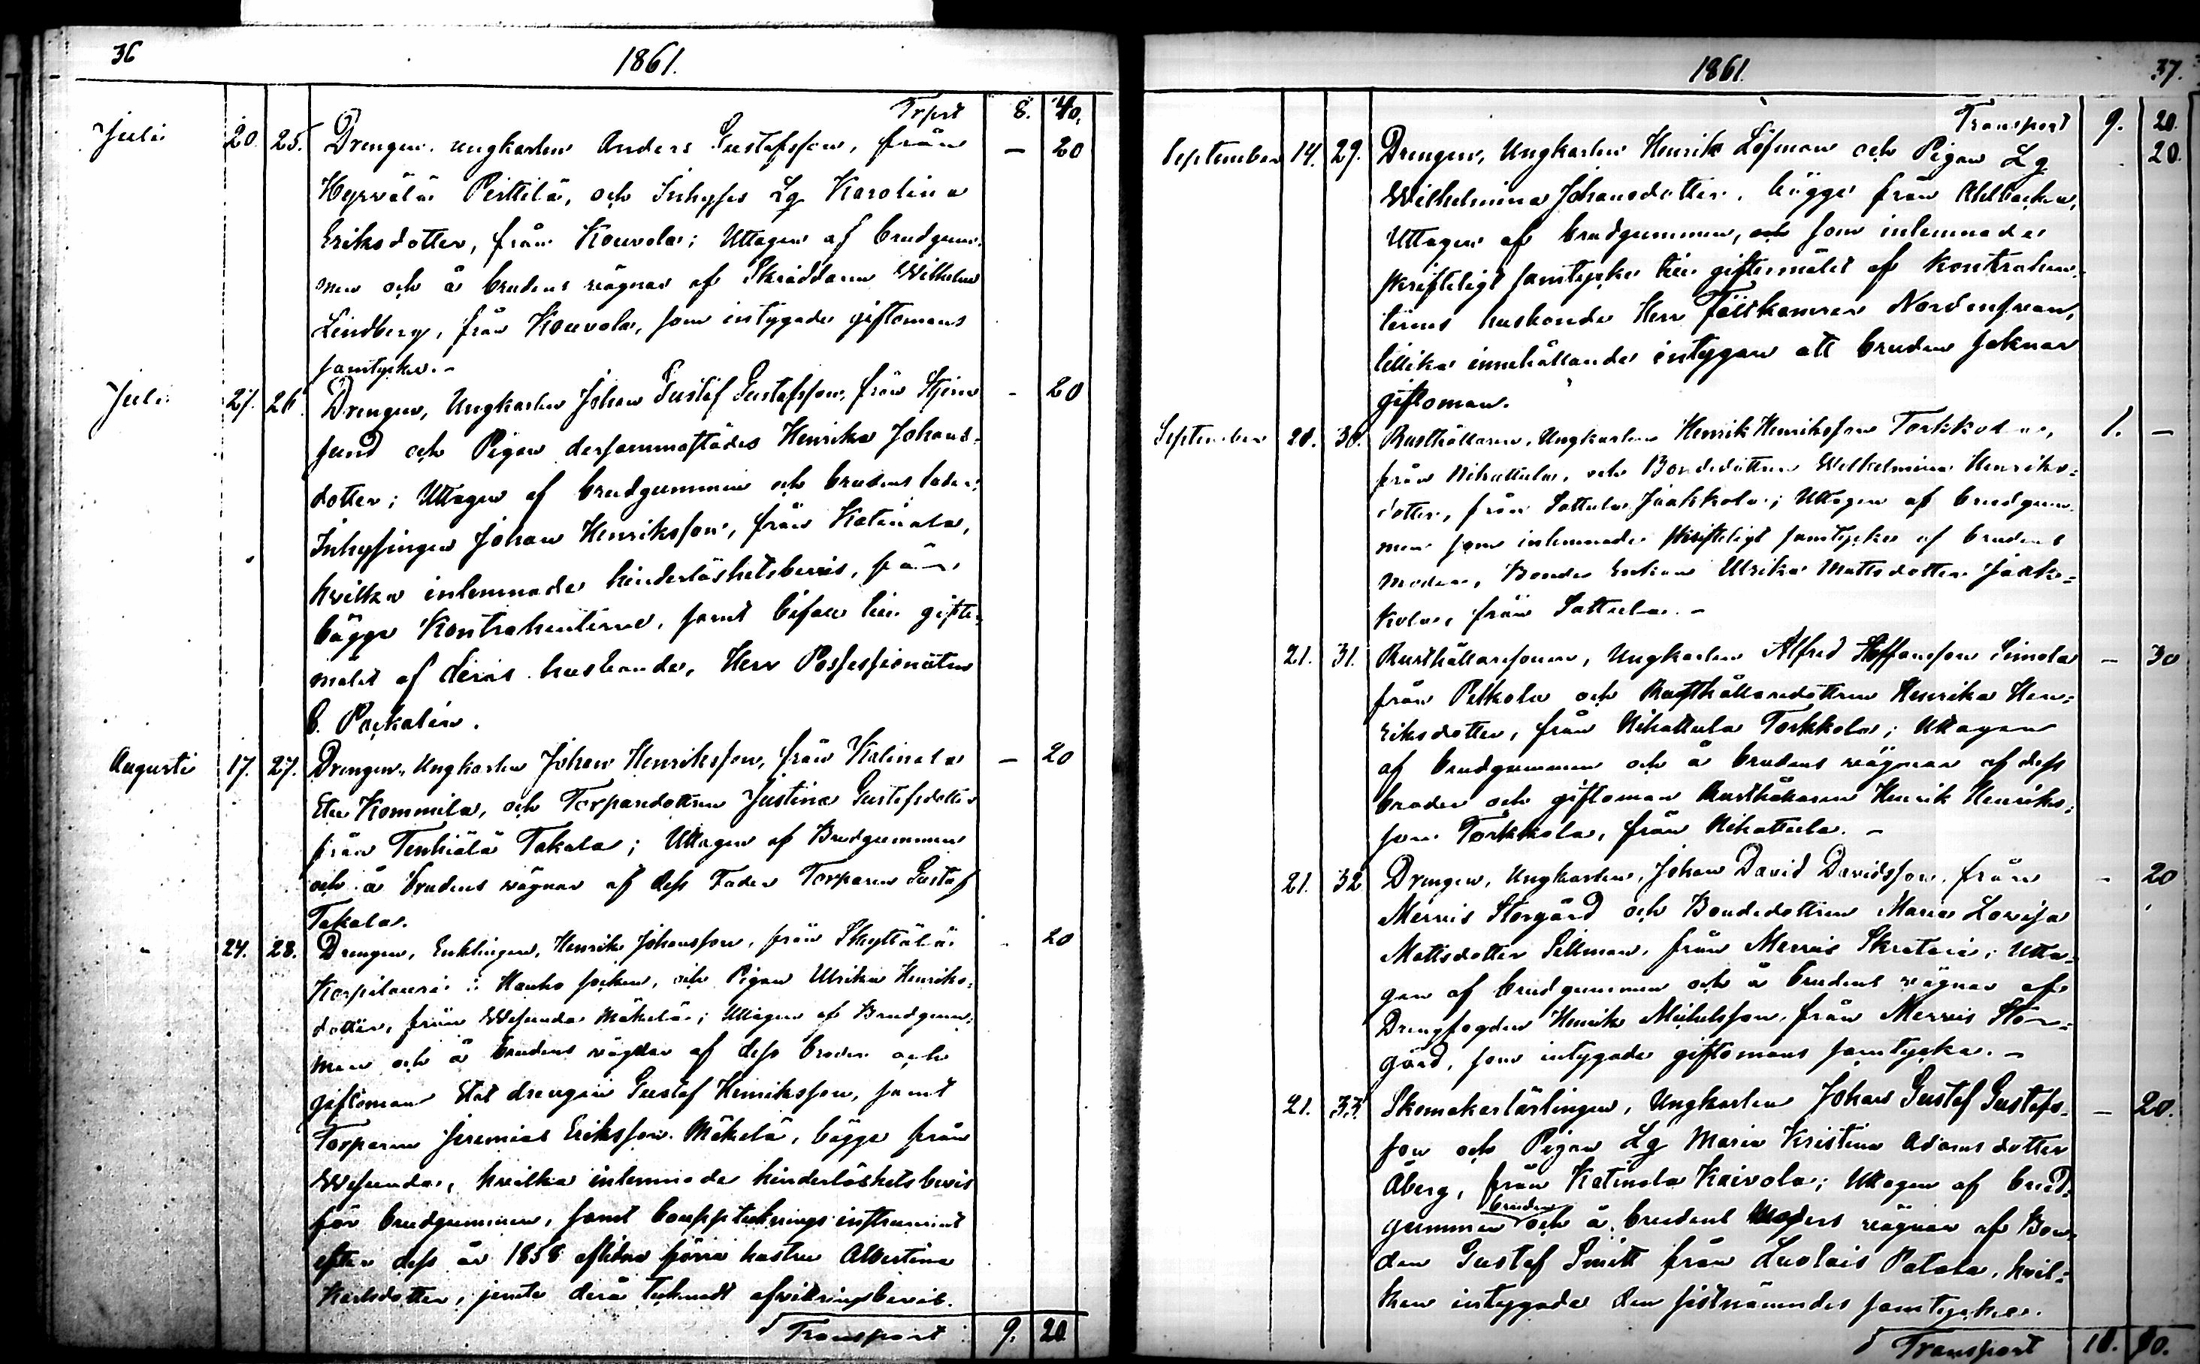 36
1861.
Trpt 8. 40.
Juli 20. 25. Drengen, ungkarlen Anders Gustafsson, från — 20
Hyrvälä Perttilä, och Inhyses Lg Karolina
Eriksdotter, från Kouvola; Uttagen af brudgum-
men och å brudens vägnar af Skräddaren Wilhelm
Lindberg, från Kouvola, som intygade giftomans
samtycke. -
Juli 27. 26. Drengen, Ungkarlen Johan Gustaf Gustafsson, från - 20
sund och Pigan dersammastädes Henrika Johans-
dotter; Uttagen af brudgummen och brudens fader,
Inhysingen Johan Henriksson, från Katinala,
hvilka inlemnade hinderlöshetsbevis, för
bägge Kontrahenterne, samt bifall till gifter-
målet af deras husbonde, Herr Possessionaten
Packalén.
Augusti 17. 27. Drengen, Ungkarlen Johan Henriksson, från Katinala — 20
Kommila, och Torparedottren Justina Gustafsdotter
från Tenhiälä Takala; Uttagen af Brudgummen
och å brudens vägnar af dess Fader Torparen Gustaf
Takala.
" 24. 28. Drengen, Enklingen, Henrik Johansson, från Skyttälä - 20
i Hauho socken, och Pigan Ulrika Henriks-
dotter, från Wesunda Mäkelä; Uttagen af Brudgum-
men och å brudens vägnar af dess broder och
giftoman drengen Gustaf Henriksson, samt
Torparen Jeremias Eriksson Mäkelä, bägge från
Wesunda, hvilka inlemnade hinderlöshetsbevis
för brudgummen, samt bouppteckningsinstrument
efter dess år 1858 aflidna förra hustru Albertina
Karlsdotter, jemte derå tecknadt afvittringsbevis.
Transport 9. 20
1861
37.
Transport 9. 20.
September 14. 29. Drengen, Ungkarlen Henrik Löfman och Pigan Lg 20.
Wilhelmina Johansdotter, bägge från Ahlbacka,
Uttagen af brudgummen, och som inlemnade
skrifteligt samtycke till giftermålet af kontrahen-
ternes husbonde Herr Fältkamrer Nordenswan,
tillika innehållande intygan att bruden saknar
giftoman.
September 20. 30. Rusthållaren, Ungkarlen Henrik Henriksson Torkkola, 1. —
från Nihattula, och Bondedottren Wilhelmina Henriks-
dotter, från Sattula Jaakkola; Uttagen af brudgum-
men som inlemnade skrifteligt samtycke af brudens
moder, Bonde Enkan Ulrika Mattsdotter Jaak-
kola, från Sattula. -
21. 31. Rusthållaresonen, Ungkarlen Alfred Staffansson Simola — 30
från Pelkola och Rusthållaredottren Henrika Hen-
riksdotter, från Nihattula Torkkola; Uttagen
af brudgummen och å brudens vägnar af dess
broder och giftoman Rusthållaren Henrik Henriks-
son Torkkola, från Nihattula. -
21. 32 Drengen, Ungkarlen, Johan David Davidsson, från - 20
Mervis Storgård och Bondedottren Maria Lovisa
Mattsdotter Sillman, från Mervis Skratari; Utta-
gen af brudgummen och å brudens vägnar af
Drengfogden Henrik Michelsson, från Mervis Stor-
gård, som intygade giftomans samtycke. -
21. 33. Skomakarlärlingen, Ungkarlen Johan Gustaf Gustafs- — 20.
son och Pigan Lg Maria Kristina Adamsdotter
Åberg, från Katinala Kaivola; Uttagen af brud-
gummen bruden och å brudens vägnar af Bon-
den Gustaf Smitt från Luolais Patala, hvil-
ken intygade den sistnämndes samtycke.
Transport 10. 80.